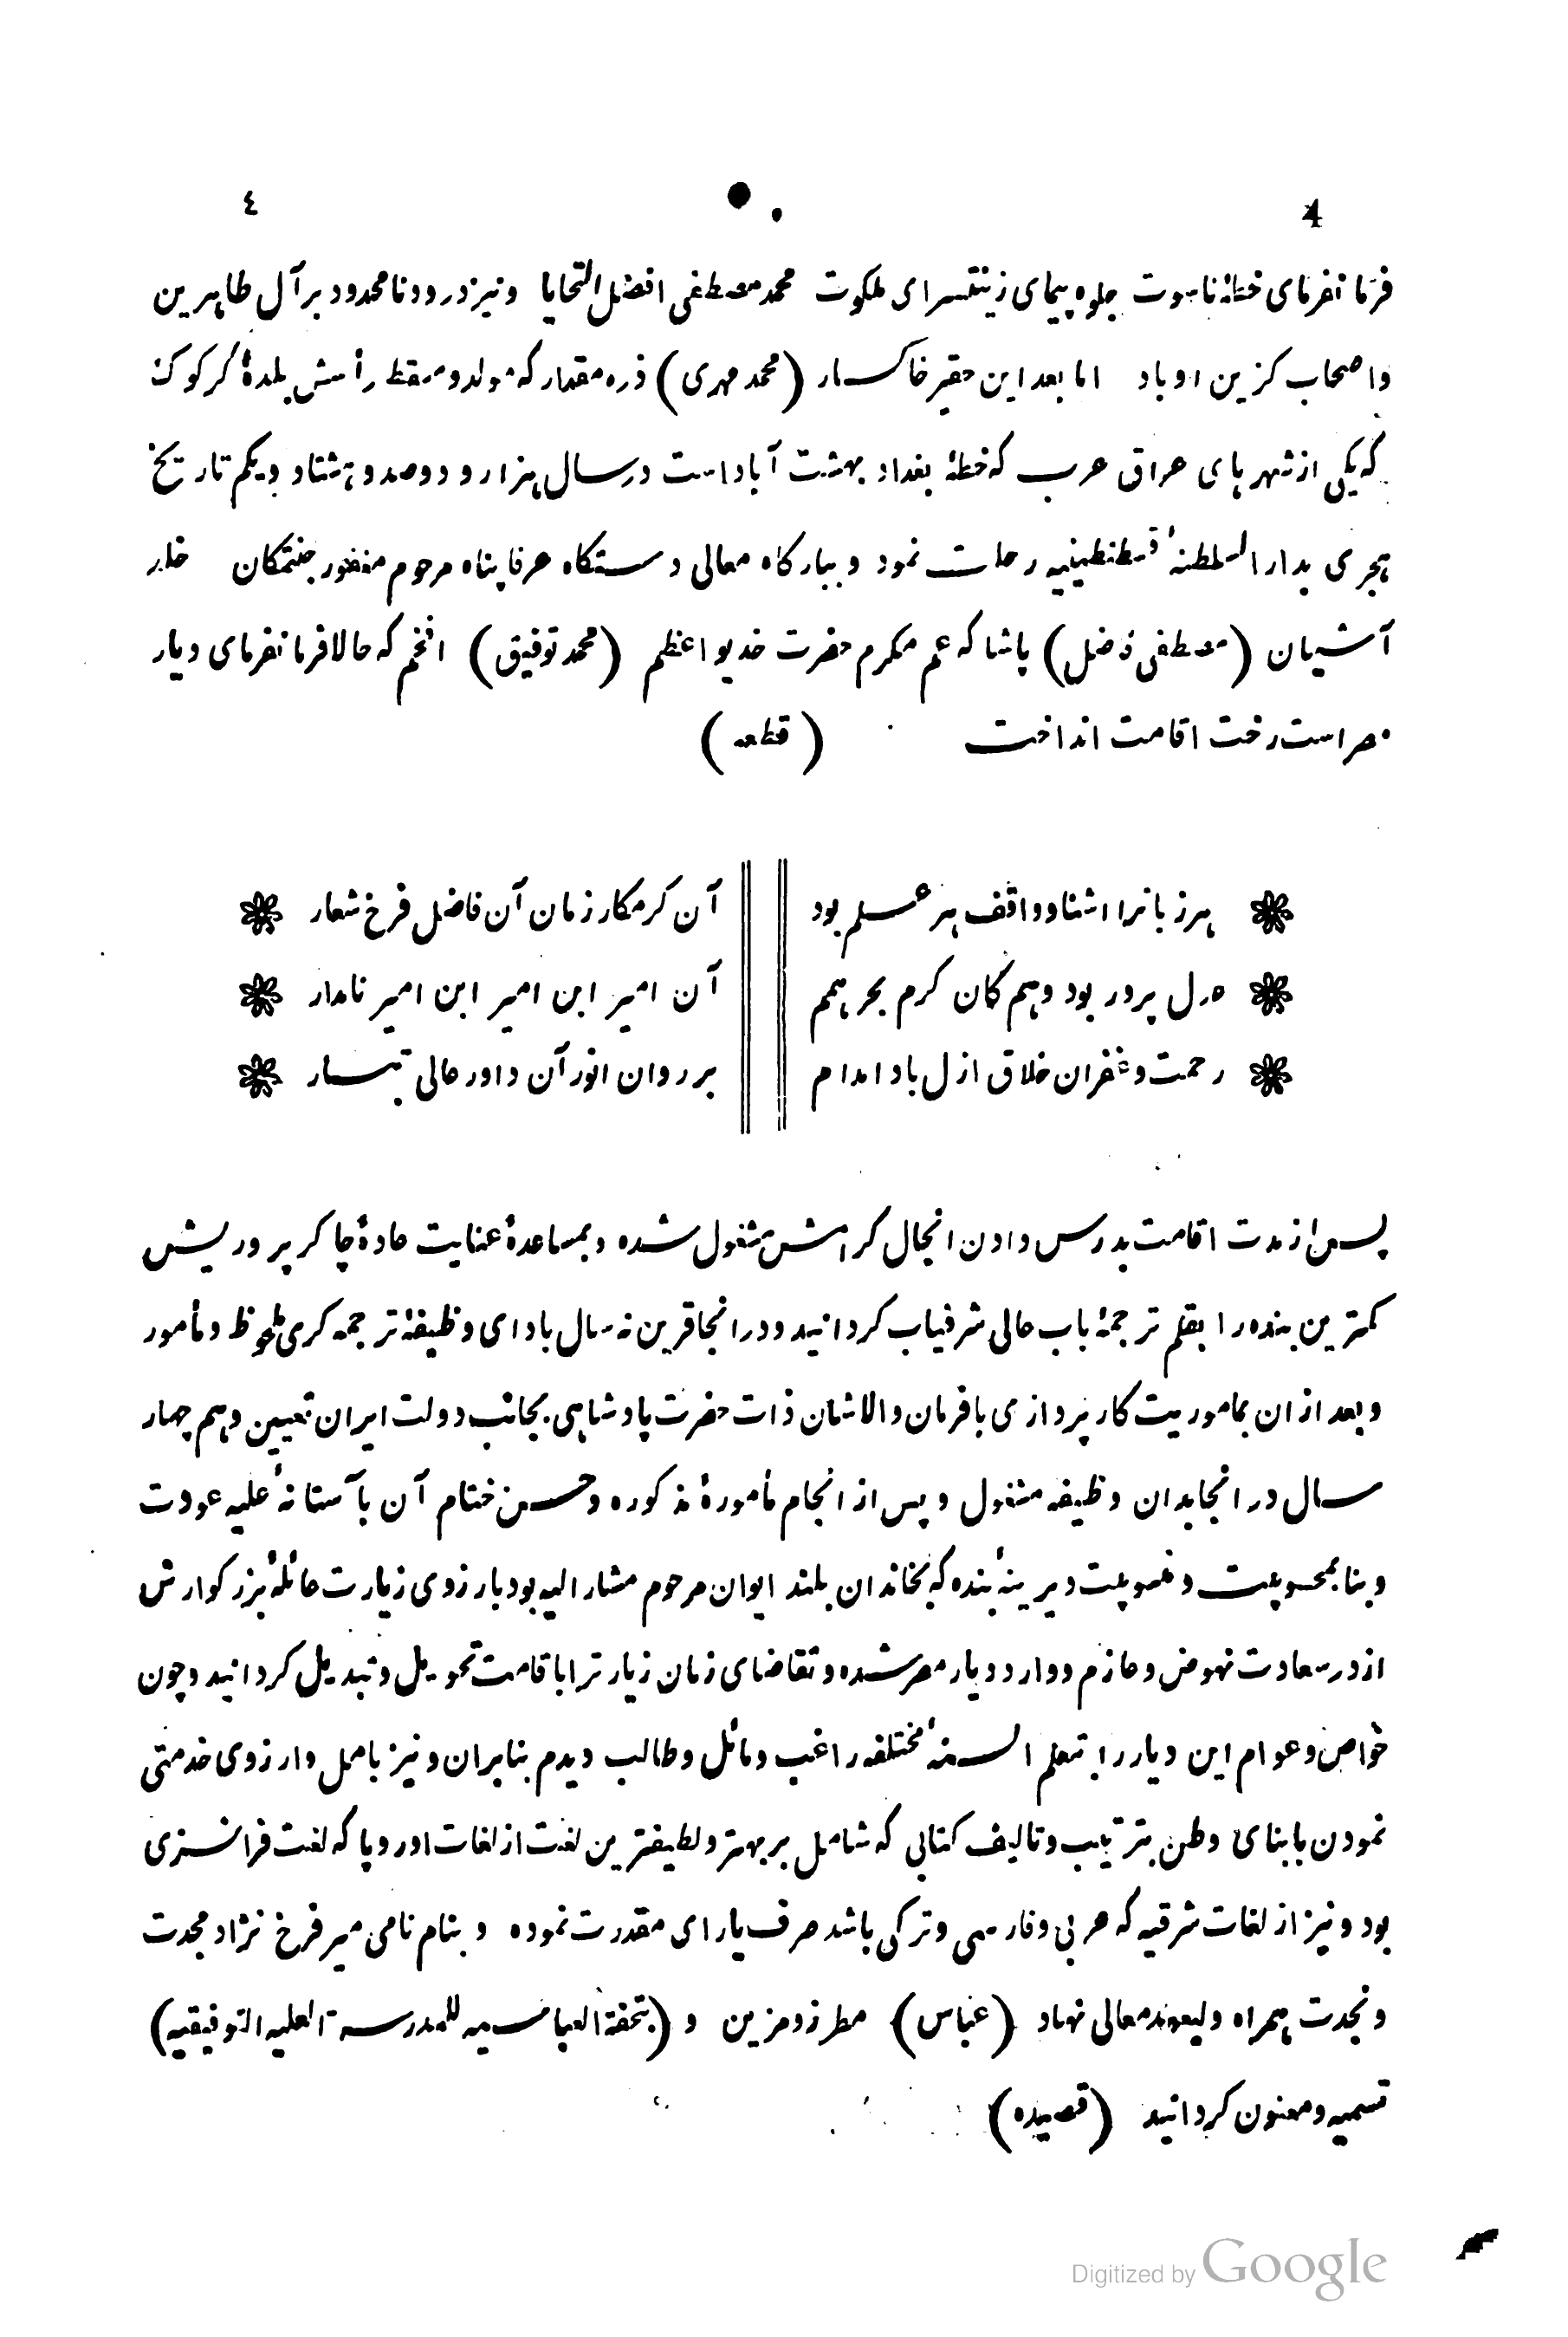 ٤ 4
فرمانفرمای خطهٔ ناسوت جلوه پیمای زینتسرای ملکوت محمد مصطفی افضل التحایا و نیز درود نامحدود بر آل طاهرین
و اصحاب کزین او باد اما بعد این حقیر خاکسار (محمد مهری) ذره مقدار که مولد و مسقط رأسش بلدهٔ کرکوک
که یکی از شهرهای عراق عرب که خطهٔ بغداد بهشت آباد است در سال هزار و دوصد و هشتاد و یکم تاریخ
هجری بدار السلطنهٔ قسطنطینیه رحلت نمود و ببارکاه معالی دستکاه عرفا پناه مرحوم مغفور جنتمکان خلد
آشیان (مصطفی فاضل) پاشا که عم مکرم حضرت خدیو اعظم (محمد توفیق) افخم که حالا فرمانفرمای دیار
مصر است رخت اقامت انداخت (قطعه)
هر زبانرا اشنا و واقف هر علم بود آن کرمکار زمان آن فاضل فرخ شعار
دل پرور بود و هم کان کرم بحر همم آن امیر ابن امیر ابن امیر نامدار
رحمت و غفران خلاق ازل بادا مدام بر روان انور آن داور عالی تبار
پس از مدت اقامت بدرس دادن انجال کرامش مشغول شده و بمساعدهٔ عنایت عادهٔ چاکر پروریش
کمترین بنده را بقلم ترجمهٔ باب عالی شرفیاب کردانید و در انجا قرین نه سال بادای وظیفهٔ ترجمه کری ملحوظ و مأمور
و بعد ازان بماموریت کار پردازی با فرمان والاشان ذات حضرت پادشاهی بجانب دولت ایران تعیین و هم چهار
سال در انجا بدان وظیفه مشغول و پس از انجام مأمورهٔ مذکوره و حسن ختام آن بآستانهٔ علیه عودت
و بنا بمحسوبیت و منسوبیت دیرینهٔ بنده که بخاندان بلند ایوان مرحوم مشار الیه بود بارزوی زیارت عائلهٔ بزرکوارش
از درسعادت نهوض و عازم و وارد دیار مصر شده و تقاضای زمان زیارترا باقامت تحویل و تبدیل کردانید و چون
خواص و عوام این دیار را بتعلم السنهٔ مختلفه راغب و مائل و طالب دیدم بنابران و نیز بامل و ارزوی خدمتی
نمودن بابنای وطن بترتیب و تالیف کتابی که شامل بر بهتر و لطیفترین لغت از لغات اوروپا که لغت فرانسزی
بود و نیز از لغات شرقیه که عربی و فارسی و ترکی باشد صرف یارای مقدرت نموده و بنام نامی میر فرخ نژاد مجدت
و نجدت همراه ولیعهد معالی نهاد (عباس) مطرز و مزین و (بتحفة العباسیه للمدرسة العلیه التوفیقیه)
تسمیه و معنون کردانید (قصیده)
Digitized by Google